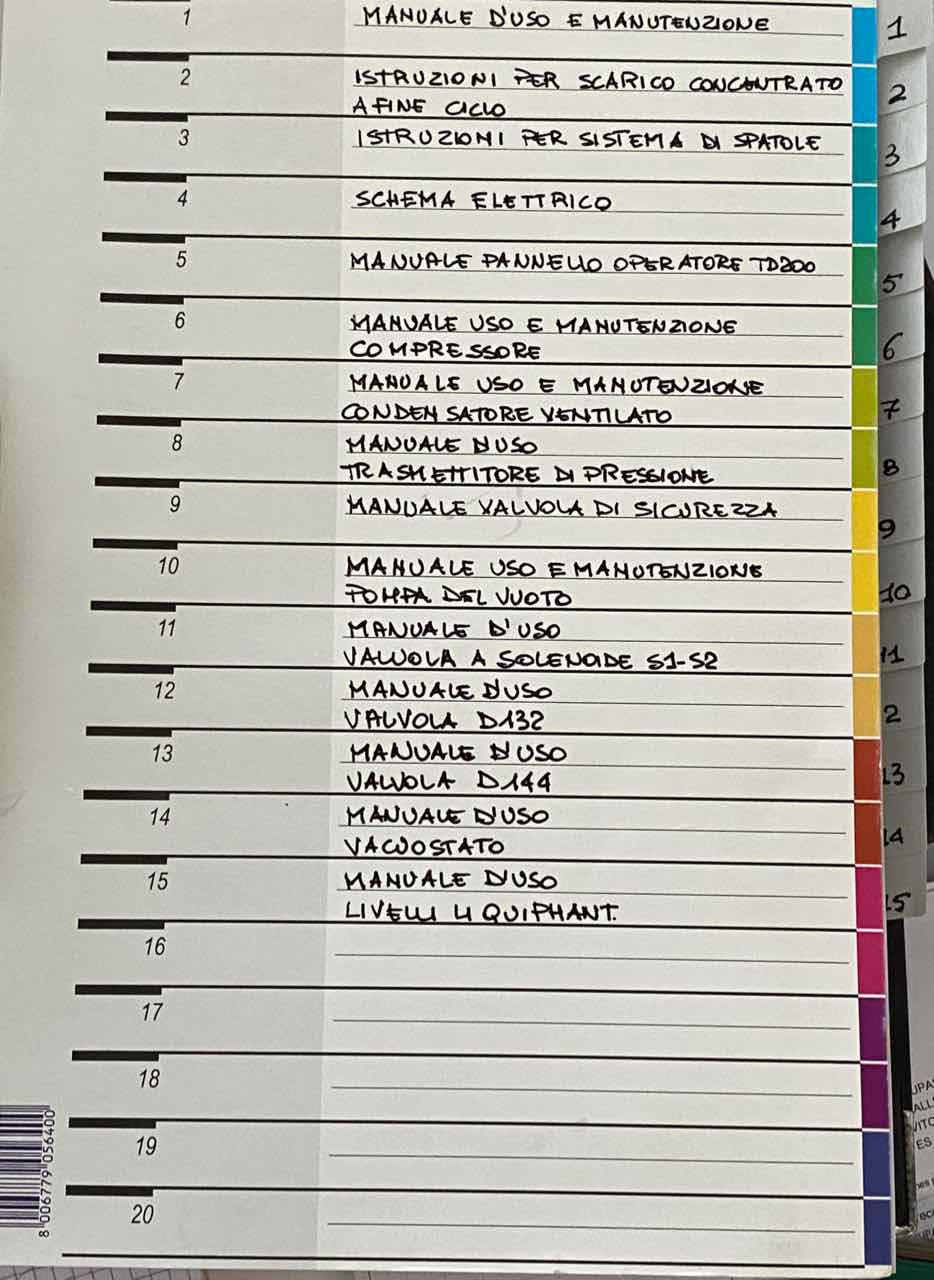 1 MANUALE D'USO E MANUTENZIONE 1
2 ISTRUZIONI PER SCARICO CONCENTRATO 2
A FINE CICLO
3 ISTRUZIONI PER SISTEMA DI SPATOLE 3
4 SCHEMA ELETTRICO 4
5 MANUALE PANNELLO OPERATORE TD200 5
6 MANUALE USO E MANUTENZIONE 6
COMPRESSORE
7 MANUALE USO E MANUTENZIONE 7
CONDENSATORE VENTILATO
8 MANUALE D'USO 8
TRASMETTITORE DI PRESSIONE
9 MANUALE VALVOLA DI SICUREZZA 9
10 MANUALE USO E MANUTENZIONE 10
POMPA DEL VUOTO
11 MANUALE D'USO 11
VALVOLA A SOLENOIDE S1-S2
12 MANUALE D'USO 2
VALVOLA D132
13 MANUALE D'USO 13
VALVOLA D144
14 MANUALE D'USO 14
VACUOSTATO
15 MANUALE D'USO 15
LIVELLI LIQUIPHANT.
16
17
18
19
20
8 006779 056400